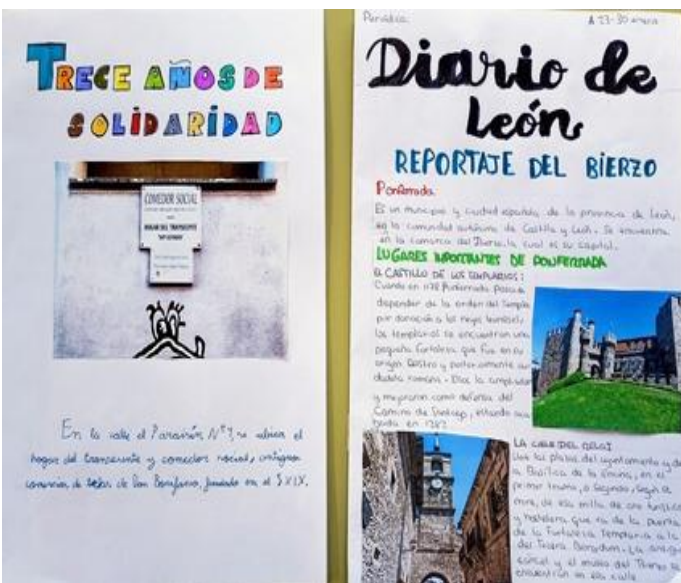 TRECE AÑOS DE
SOLIDARIDAD
COMEDOR SOCIAL
HOGAR DEL TRANSEUNTE
En la calle el Paraisín, Nº7, se ubica el
hogar del transeunte y comedor social, antiguo
comercio de telas de Don Bonifacio, fundado en el S XIX.
A 23-30 enero
Diario de
León
REPORTAJE DEL BIERZO
Ponferrada
Es un municipio y ciudad española de la provincia de León,
en la comunidad autónoma de Castilla y León. Se encuentra
en la comarca del Bierzo, la cual es su capital.
LUGARES IMPORTANTES DE PONFERRADA
EL CASTILLO DE LOS TEMPLARIOS:
Cuando en 1178 Ponferrada pasa a
depender de la orden del Temple
por donación a los reyes leoneses,
los templarios se encuentran una
pequeña fortaleza que fue en su
origen Castro y posteriormente
ciudadela romana. Ellos la ampliaron
y mejoraron como defensa del
Camino de Santiago, estando
en 1282
LA CALLE DEL RELOJ
Une las plazas del ayuntamiento y de
la Basílica de la Encina, en el
primer tramo, o segundo, según se
mire, de esa milla de oro turística
y hostelera que va de la puerta
de la Fortaleza Templaria a la
del Teatro Bergidum. La antigua
cárcel y el museo del Bierzo se
encuentran en esa calle